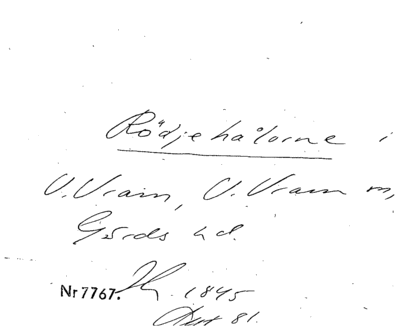 Rödjehålorne i
V. Vram, V. Vram sn,
Gärds hd.
Nr 7767. 1845
81.